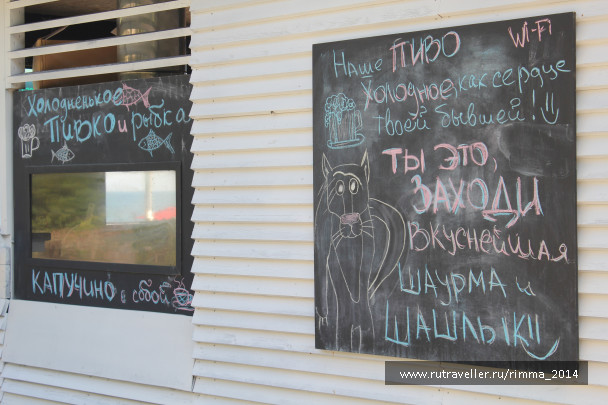 Холодненькое
Пивко и рыбка
КАПУЧИНО с собой
Wi-Fi
Наше ПИВО
Холодное, как сердце
твоей бывшей!
ТЫ ЭТО,
ЗАХОДИ
Вкуснейшая
ШАУРМА и
ШАШЛЫК!!
www.rutraveller.ru/rimma_2014